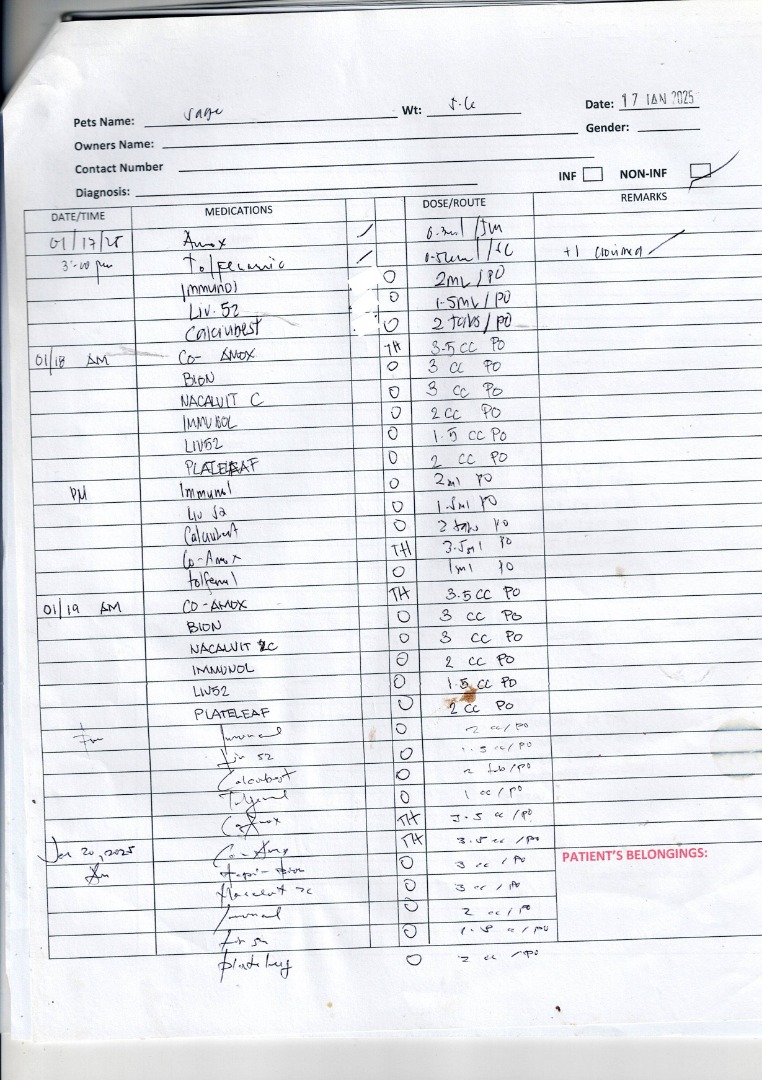 Pets Name: Sage Wt: 5.6 Date: 17 JAN 2025
Owners Name: Gender:
Contact Number
INF NON-INF
Diagnosis:
DATE/TIME MEDICATIONS DOSE/ROUTE REMARKS
01/17/25 Amox /IM
3:00 pm +1
Immunol O 2mL/PO
Liv.52 O 1.5mL/PO
Calciubest O 2 tabs/PO
01/18 AM CO-AMOX TH 3.5 CC PO
BION O 3 CC PO
NACALVIT C O 3 CC PO
IMMUNOL O 2 CC PO
LIV52 O 1.5 CC PO
PLATELEAF O 2 CC PO
PM Immunol O 2ml PO
Liv 52 O 1.5ml PO
Calciubest O 2 tabs PO
Co-Amox TH 3.5ml PO
Tolfenol O 1ml PO
01/19 AM CO-AMOX TH 3.5 CC PO
BION O 3 CC PO
NACALVIT C O 3 CC PO
IMMUNOL O 2 CC PO
LIV52 O 1.5 CC PO
PLATELEAF O 2 CC PO
Immunol O 2 cc/PO
Liv 52 O 1.5 cc/PO
Calciubest O 2 tab/PO
O 1 cc/PO
Co-Amox TH 3.5 cc/PO
Jan 20, 2025 Co-Amox TH 3.5 cc/PO
PATIENT'S BELONGINGS:
Am O 3 cc/PO
Nacalvit C O 3 cc/PO
Immunol O 2 cc/PO
Liv 52 O 1.5 cc/PO
Plateleaf O 2 cc/PO